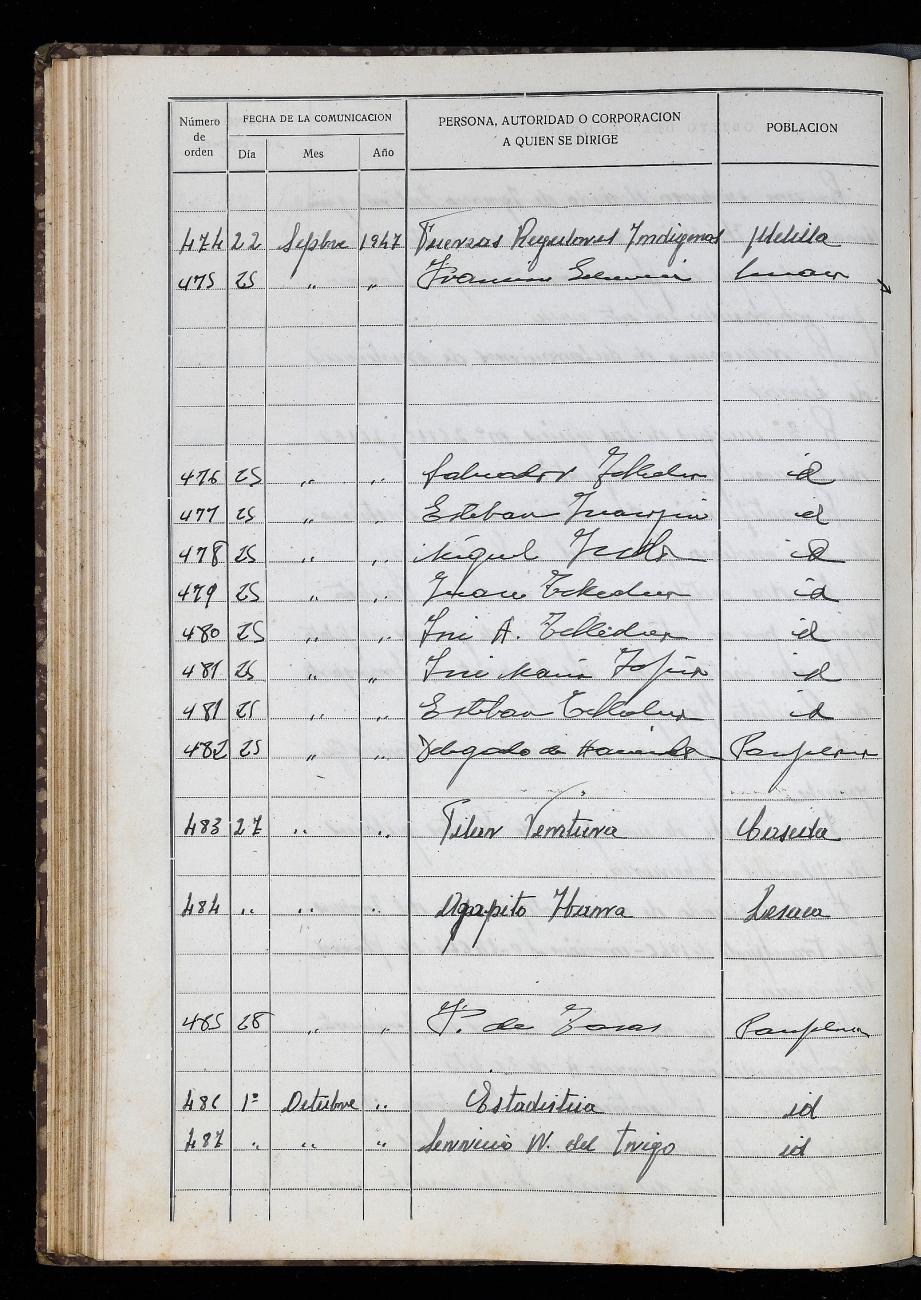 Número de orden | FECHA DE LA COMUNICACION | PERSONA, AUTORIDAD O CORPORACION A QUIEN SE DIRIGE | POBLACION
Día | Mes | Año
474 22 Sepbre 1947 Fuerzas Regulares Indigenas Melilla
475 25 " "
476 25 " " Salvador id
477 25 " " Esteban id
478 25 " " Miguel id
479 25 " " Juan id
480 25 " " A. id
481 25 " " Maria id
481 25 " " Esteban id
482 25 " " Delegado de Hacienda Pamplona
483 27 " " Pilar Ventura Caseda
484 " " " Agapito Ibarra Lesaca
485 28 " " F. de Tasas Pamplona
486 1º Octubre " Estadistica id
487 " " " Servicio N. del Trigo id